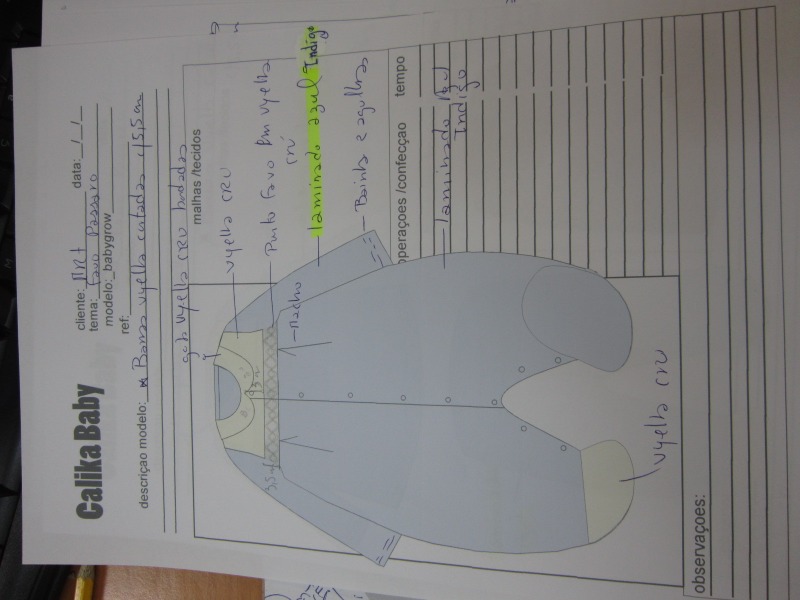 Calika Baby
cliente: Art data: _/_/_
tema: Favo Passaro
modelo: _babygrow
ref:
descriçao modelo: * Banda vyella cortadas c/5,5 cm
gola vyella cru bordada
malhas /tecidos
vyella cru
Punto Favo em vyella
cru
laminado azul Indigo
Bainha 2 agulhas
Macho
3,5 cm
operaçoes /confecçao tempo
laminado Azul
Indigo
vyella cru
observaçoes: